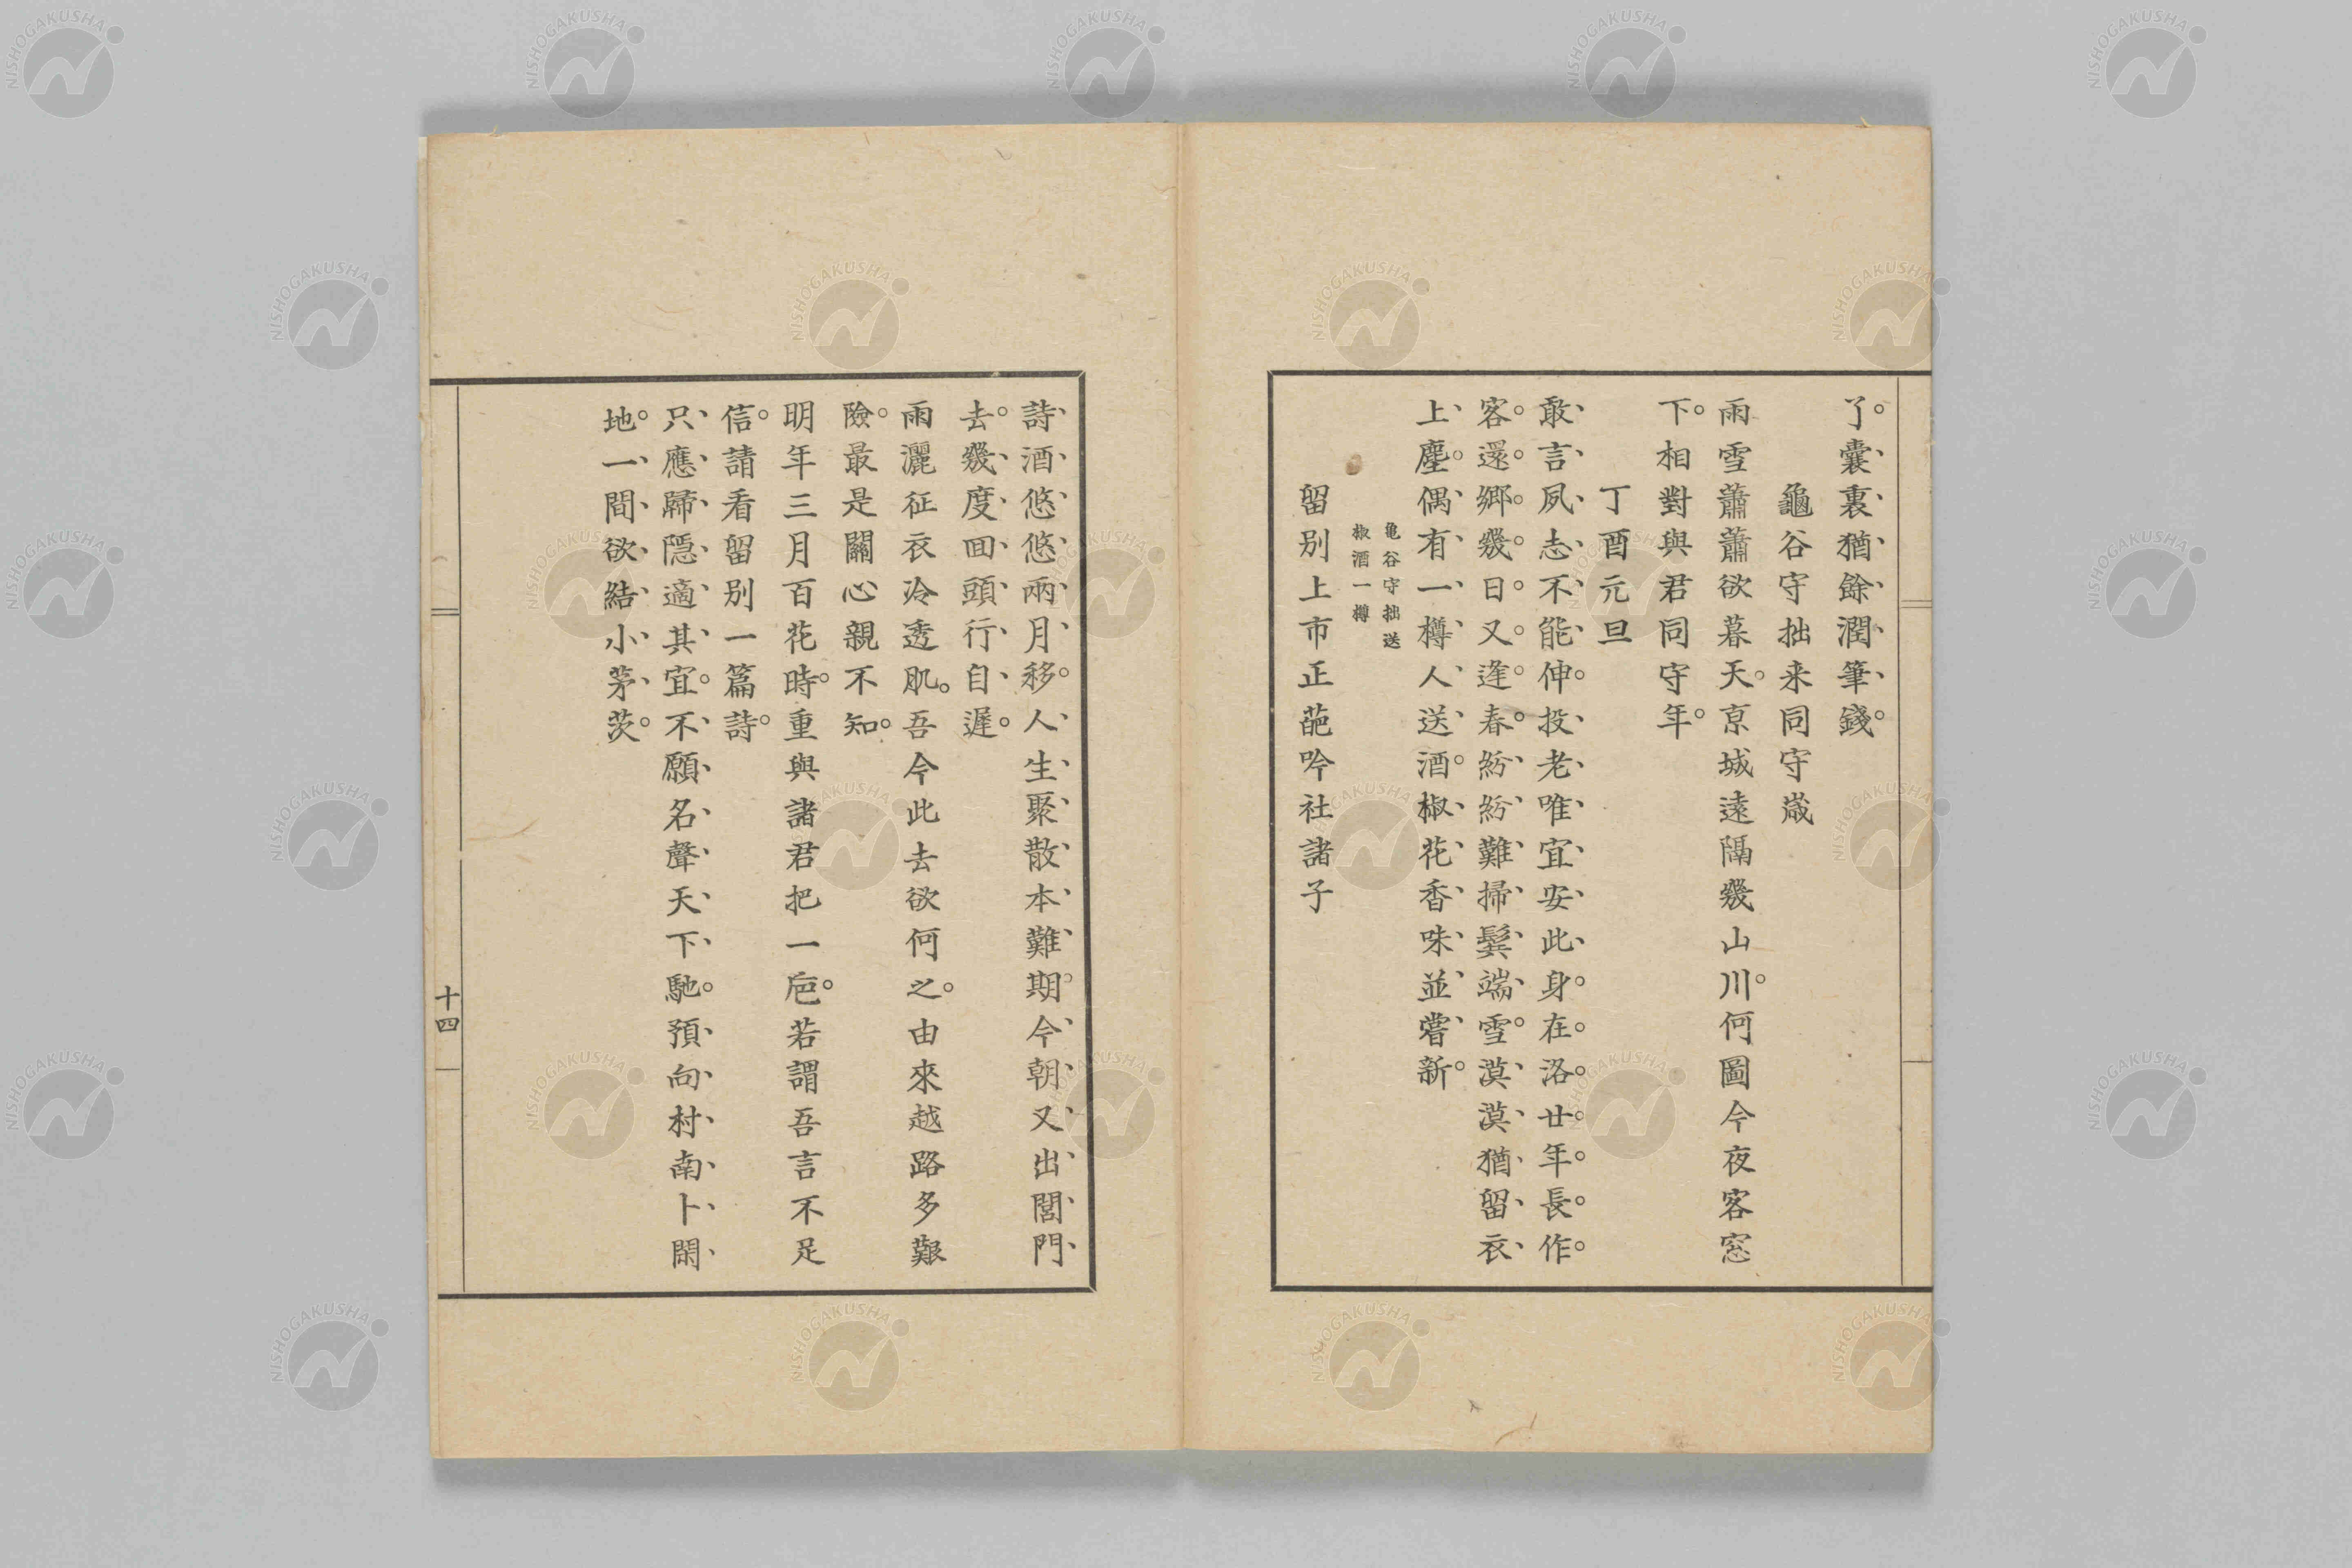 了。囊裏猶餘潤筆錢。
龜谷守拙来同守歳
雨雪蕭蕭欲暮天。京城遠隔幾山川。何圖今夜客窓
下。相對與君同守年。
丁酉元旦
敢言夙志不能伸。投老唯宜安此身。在洛廿年長作
客。還郷幾日又逢春。紛紛難掃鬓端雪。漠漠猶留衣
上塵。偶有一樽人送酒。椒花香味並嘗新。
亀谷守拙送
椒酒一樽
留別上市正葩吟社諸子
詩酒悠悠兩月移。人生聚散本難期。今朝又出閭門
去。幾度回頭行自遲。
雨灑征衣冷透肌。吾今此去欲何之。由來越路多艱
險。最是關心親不知。
明年三月百花時。重與諸君把一巵。若謂吾言不足
信。請看留別一篇詩。
只應歸隱適其宜。不願名聲天下馳。預向村南卜閑
地。一間欲結小茅茨。
十四
NISHOGAKUSHA